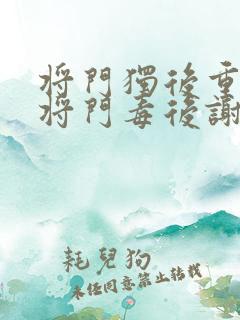 將門獨後重
將門毒後謝
耗兒狗
未經同意禁止轉載